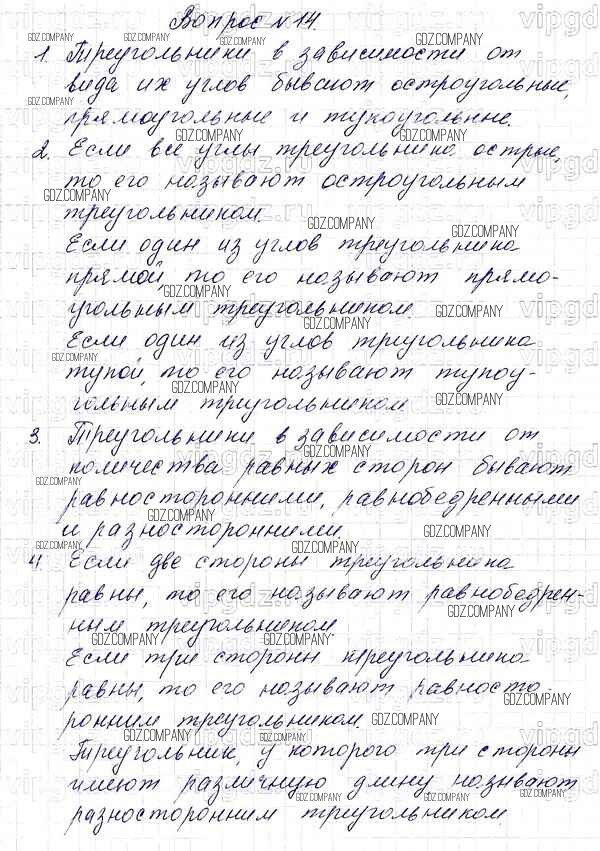 Вопрос №14.
1. Треугольники в зависимости от
вида их углов бывают остроугольные,
прямоугольные и тупоугольные.
2. Если все углы треугольника острые,
то его называют остроугольным
треугольником.
Если один из углов треугольника
прямой, то его называют прямо-
угольным треугольником.
Если один из углов треугольника
тупой, то его называют тупоу-
гольным треугольником
3. Треугольники в зависимости от
количества равных сторон бывают
равносторонними, равнобедренными
и разносторонними.
4. Если две стороны треугольника
равны, то его называют равнобедрен-
ным треугольником
Если три стороны треугольника
равны, то его называют равносто-
ронним треугольником.
Треугольник, у которого три стороны
имеют различную длину называют
разносторонним треугольником